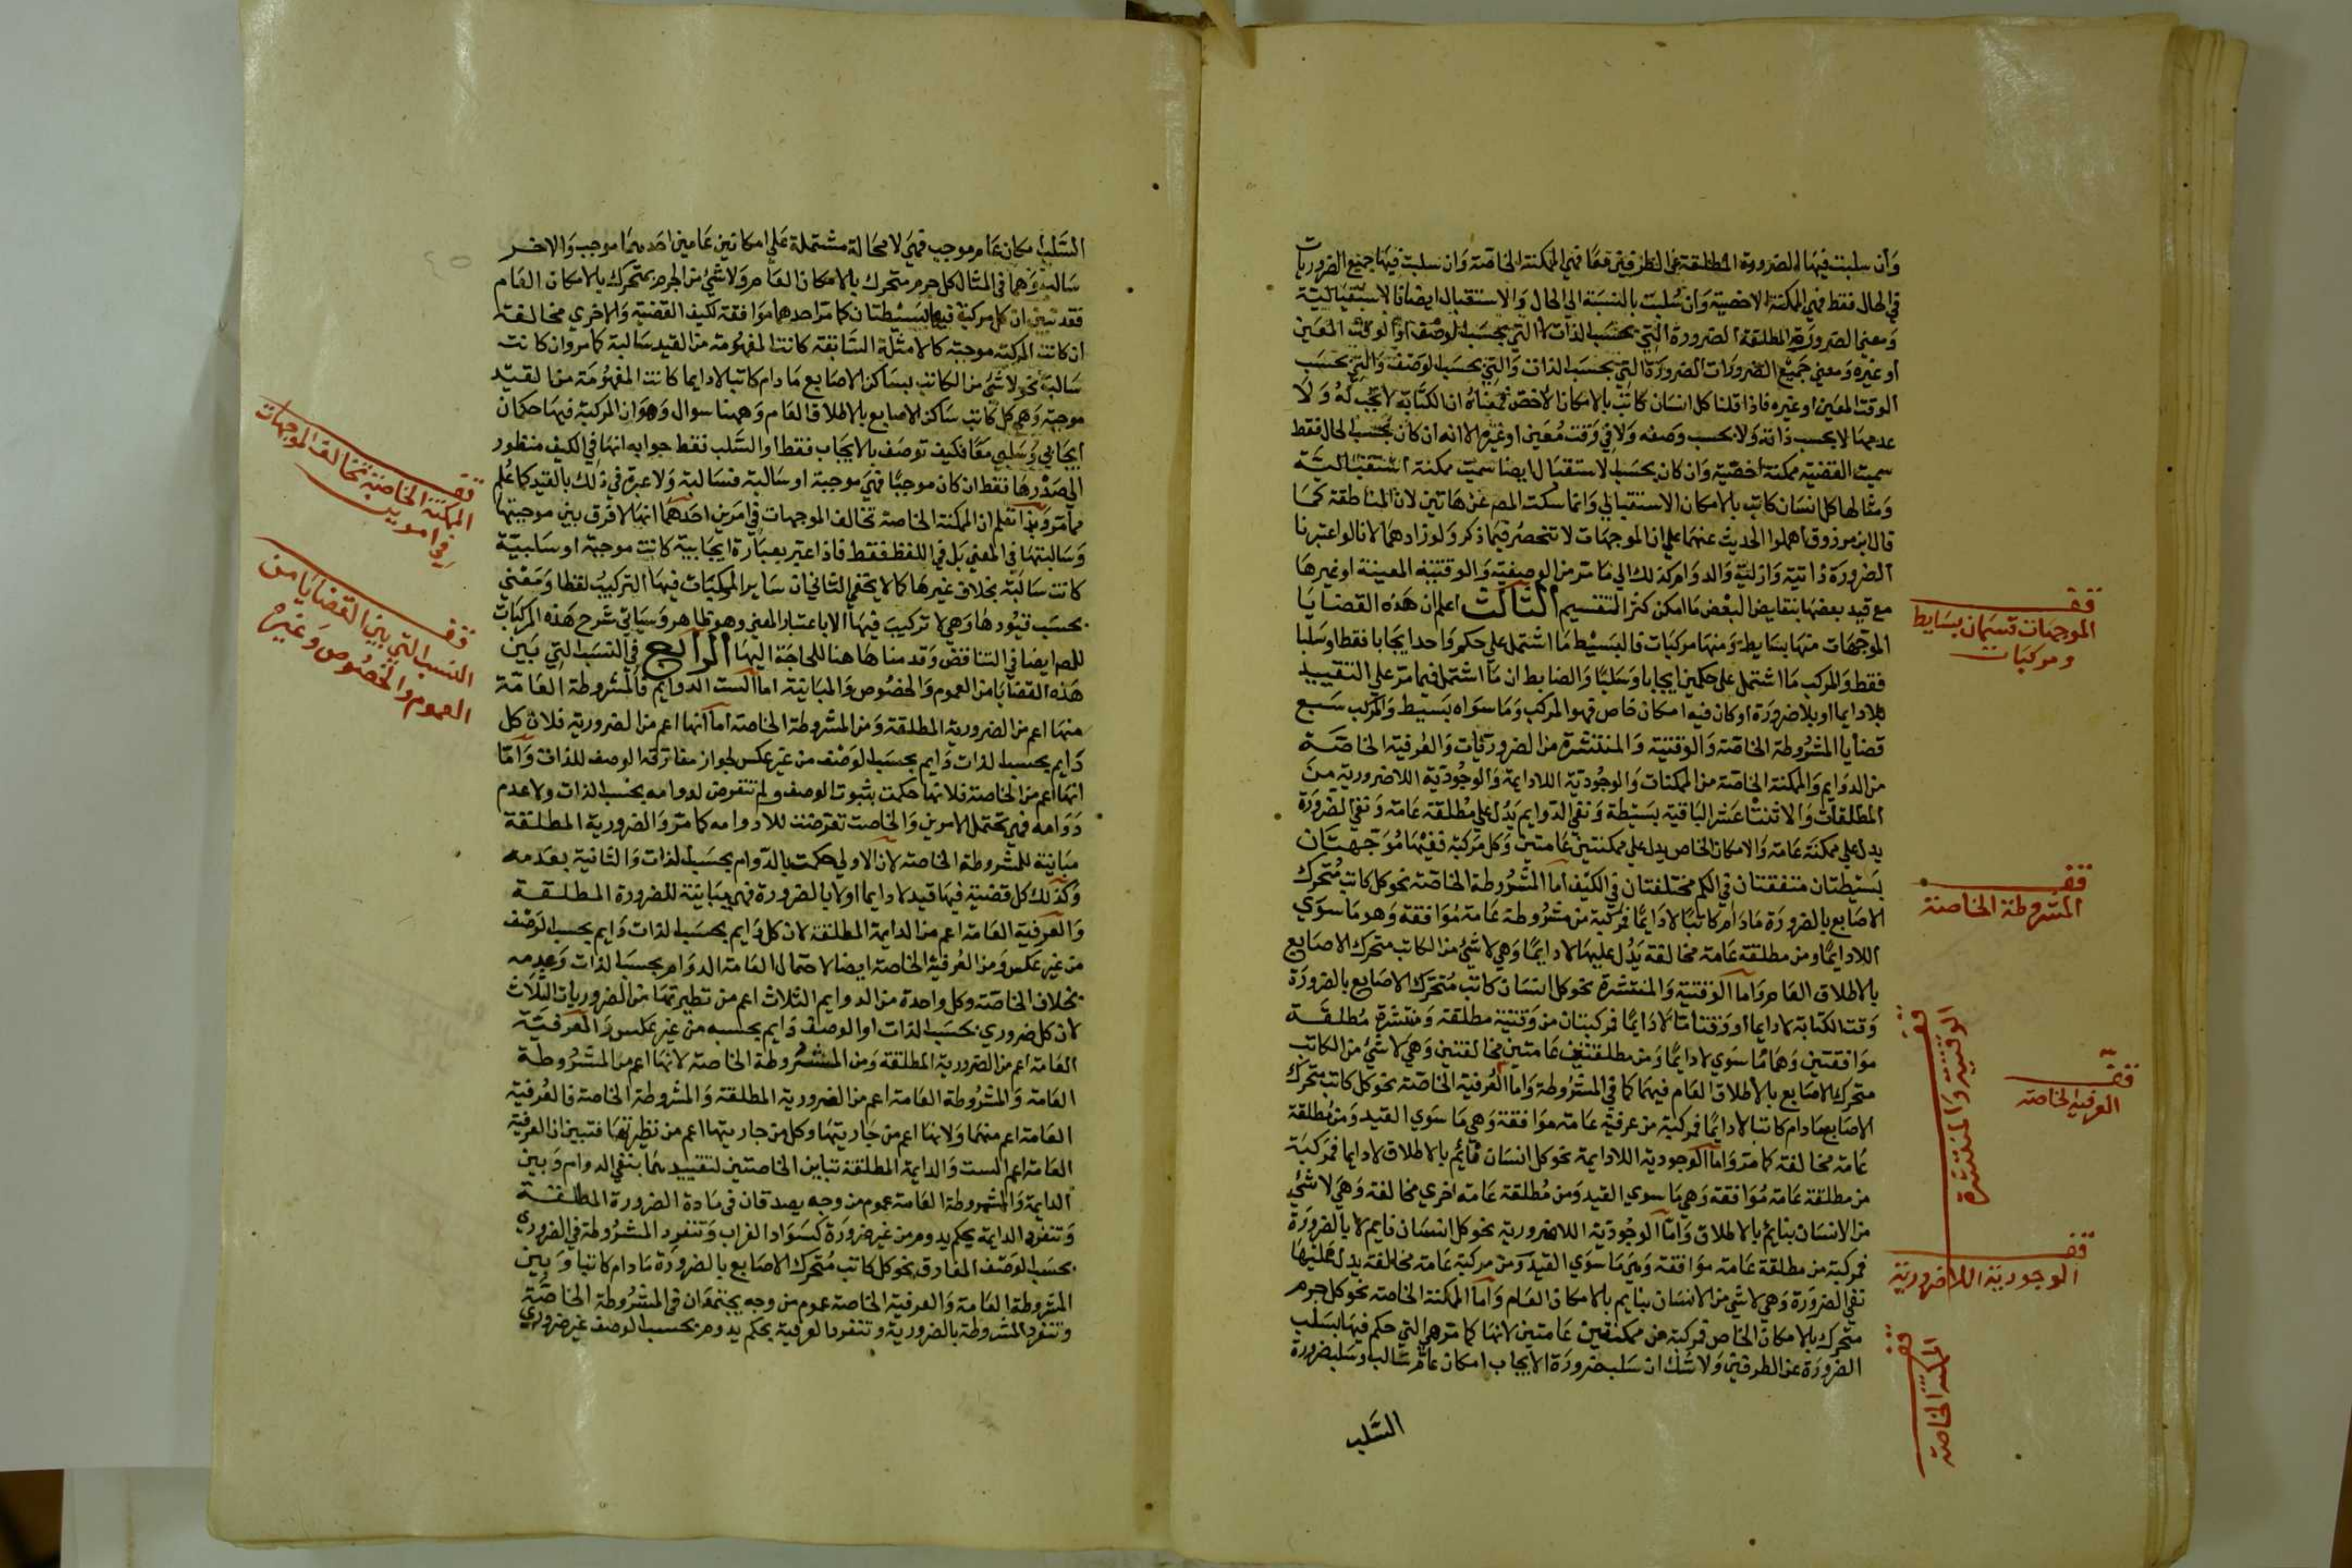 وان سلبت فيها الضرورة المطلقة عن الطرفين معا فهي الممكنة الخاصة وان سلبت فيها جميع الضرورات
في الحال فقط فهي الممكنة الاخصية وان سلبت بالنسبة الي الحال والاستقبال ايضا فالاستقبالية
ومعني الضرورة المطلقة الضرورة التي بحسب الذات لا التي بحسب الوصف او الوقت المعين
او غيره ومعني جميع الضرورات الضرورة التي بحسب الذات والتي بحسب الوصف والتي بحسب
الوقت المعين او غيره فاذا قلنا كل انسان كاتب بالامكان الاخص فمعناه ان الكتابة لا تجب له ولا
عدمها لا بحسب ذاته ولا بحسب وصفه ولا في وقت معين او غيره الا انه ان كان بحسب الحال فقط
سميت القضية ممكنة اخصية وان كان بحسب الاستقبال ايضا سميت ممكنة استقبالية
ومثالها كل انسان كاتب بالامكان الاستقبالي وانما سكت المص عن هاتين لان المناطقة كما
قال ابن مرزوق اهملوا الحديث عنهما علي ان الموجهات لا تنحصر فيما ذكر ولو زادهما لانا لو اعتبرنا
الضرورة ذاتية وازلية والدوام كذلك الي ما مر من الوصفية والوقتية المعينة او غيرها
مع قيد بعضها بنقايض البعض ما امكن كثر التقسيم الثالث اعلم ان هذه القضايا
الموجهات منها بسايط ومنها مركبات فالبسيط ما اشتمل علي حكم واحد ايجابا فقط او سلبا
فقط والمركب ما اشتمل علي حكمين ايجابا وسلبا والضابط ان ما اشتمل فيما مر علي التقييد
بلا دايما او بلا ضرورة او كان فيه امكان خاص فهو المركب وما سواه بسيط والمركب سبع
قضايا المشروطة الخاصة والوقتية والمنتشرة من الضروريات والعرفية الخاصة
من الدوايم والممكنة الخاصة من الممكنات والوجودية اللادايمة والوجودية اللاضرورية من
المطلقات والاثنتا عشر الباقية بسيطة ونفي الدوايم يدل علي مطلقة عامة ونفي الضرورة
يدل علي ممكنة عامة والامكان الخاص يدل علي ممكنتين عامتين وكل مركبة ففيها موجهتان
بسيطتان متفقتان في الكم مختلفتان في الكيف اما المشروطة الخاصة نحو كل كاتب متحرك
الاصابع بالضرورة مادام كاتبا لا دايما فمركبة من مشروطة عامة موافقة وهو ما سوي
اللادايما ومن مطلقة عامة مخالفة يدل عليها لا دايما وهي لا شئ من الكاتب متحرك الاصابع
بالاطلاق العام واما الوقتية والمنتشرة نحو كل انسان كاتب متحرك الاصابع بالضرورة
وقت الكتابة لا دايما او وقتا ما لا دايما فمركبتان من وقتية مطلقة ومنتشرة مطلقة
موافقتين وهما ما سوي لا دايما ومن مطلقتين عامتين مخالفتين وهي لا شئ من الكاتب
متحرك الاصابع بالاطلاق العام فيهما كما في المشروطة واما العرفية الخاصة نحو كل كاتب متحرك
الاصابع مادام كاتبا لا دايما فمركبة من عرفية عامة موافقة وهي ما سوي القيد ومن مطلقة
عامة مخالفة كما مر واما الوجودية اللادايمة نحو كل انسان قائم بالاطلاق لا دايما فمركبة
من مطلقة عامة موافقة وهي ما سوي القيد ومن مطلقة عامة اخري مخالفة وهي لا شئ
من الانسان بنايم بالاطلاق واما الوجودية اللاضرورية نحو كل انسان نايم لا بالضرورة
فمركبة من مطلقة عامة موافقة وهي ما سوي القيد ومن مركبة عامة مخالفة يدل عليها
نفي الضرورة وهي لا شئ من الانسان بنايم بالامكان العام واما الممكنة الخاصة نحو كل جرم
متحرك بالامكان الخاص فمركبة من ممكنتين عامتين لانها كما مر هي التي حكم فيها بسلب
الضرورة عن الطرفين ولا شك ان سلب ضرورة الايجاب امكان عام سالب وسلب ضرورة
السلب
ققـ
الموجهات قسمان بسايط
ومركبات
ققـ
المشروطة الخاصة
ققـ
الوقتية والمنتشرة
ققـ
العرفية الخاصة
ققـ
الوجودية اللاضرورية
ققـ
الممكنة الخاصة
السلب امكان عام موجب فهي لا محالة مشتملة علي امكانين عامين احدهما موجب والاخر
سالب وهما في المثال كل جرم متحرك بالامكان العام ولا شئ من الجرم بمتحرك بالامكان العام
فقد تبين ان كل مركبة فيها بسيطتان كما مر احدهما موافقة لكيف القضية والاخري مخالفة
ان كانت المركبة موجبة كالامثلة السابقة كانت المفهومة من القيد سالبة كما مر وان كانت
سالبة نحو لا شئ من الكاتب بساكن الاصابع مادام كاتبا لا دايما كانت المفهومة من القيد
موجبة وهي كل كاتب ساكن الاصابع بالاطلاق العام وههنا سوال وهو ان المركبة فيها حكمان
ايجابي وسلبي معا فكيف توصف بالايجاب فقط او السلب فقط جوابه انها في الكيف منظور
الي صدرها فقط ان كان موجبا فهي موجبة او سالبة فسالبة ولا عبرة في ذلك بالقيد كما علم
مما مر وبهذا تعلم ان الممكنة الخاصة تخالف الموجهات في امرين احدهما انها لا فرق بين موجبتها
وسالبتها في المعني بل في اللفظ فقط فاذا عبر بعبارة ايجابية كانت موجبة او سلبية
كانت سالبة بخلاف غيرها كما لا يخفي الثاني ان ساير المركبات فيها التركيب لفظا ومعني
بحسب قيودها وهي لا تركيب فيها الا باعتبار المعني وهو ظاهر وسياتي شرح هذه المركبات
للمص ايضا في التناقض وقدمناها هنا للحاجة اليها الرابع في النسب التي بين
هذه القضايا من العموم والخصوص والمباينة اما الست الدوايم فالمشروطة العامة
منها اعم من الضرورية المطلقة ومن المشروطة الخاصة اما انها اعم من الضرورية فلان كل
دايم بحسب الذات دايم بحسب الوصف من غير عكس لجواز مفارقة الوصف للذات واما
انها اعم من الخاصة فلانها حكمت بثبوت الوصف ولم تتعرض لدوامه بحسب الذات ولا عدم
دوامه فهي تحتمل الامرين والخاصة تعرضت للادوامه كما مر والضرورية المطلقة
مباينة للمشروطة الخاصة لان الاولي حكمت بالدوام بحسب الذات والثانية بعدمه
وكذلك كل قضية فيها قيد لا دايما او لا بالضرورة فهي مباينة للضرورة المطلقة
والعرفية العامة اعم من الدايمة المطلقة لان كل دايم بحسب الذات دايم بحسب الوصف
من غير عكس ومن العرفية الخاصة ايضا لاحتمال العامة الدوام بحسب الذات وعدمه
بخلاف الخاصة وكل واحدة من الدوايم الثلاث اعم من نظيرتها من الضروريات الثلاث
لان كل ضروري بحسب الذات او الوصف دايم بحسبه من غير عكس والعرفية
العامة اعم من الضرورية المطلقة ومن المشروطة الخاصة لانها اعم من المشروطة
العامة والمشروطة العامة اعم من الضرورية المطلقة والمشروطة الخاصة فالعرفية
العامة اعم منهما ولانها اعم من جاريتها وكل من جاريتها اعم من نظيرتها فتبين ان العرفية
العامة اعم الست والدايمة المطلقة تباين الخاصتين لتقييدهما بنفي الدوام وبين
الدايمة والمشروطة العامة عموم من وجه يصدقان في مادة الضرورة المطلقة
وتنفرد الدايمة بحكم يدوم من غير ضرورة كسواد الغراب وتنفرد المشروطة في الضروري
بحسب الوصف المفارق نحو كل كاتب متحرك الاصابع بالضرورة مادام كاتبا وبين
المشروطة العامة والعرفية الخاصة عموم من وجه يجتمعان في المشروطة الخاصة
وتنفرد المشروطة بالضرورية وتنفرد العرفية بحكم يدوم بحسب الوصف غير ضروري
ققـ
الممكنة الخاصة تخالف الموجهات
في امرين
ققـ
النسب التي بين القضايا من
العموم والخصوص وغيره